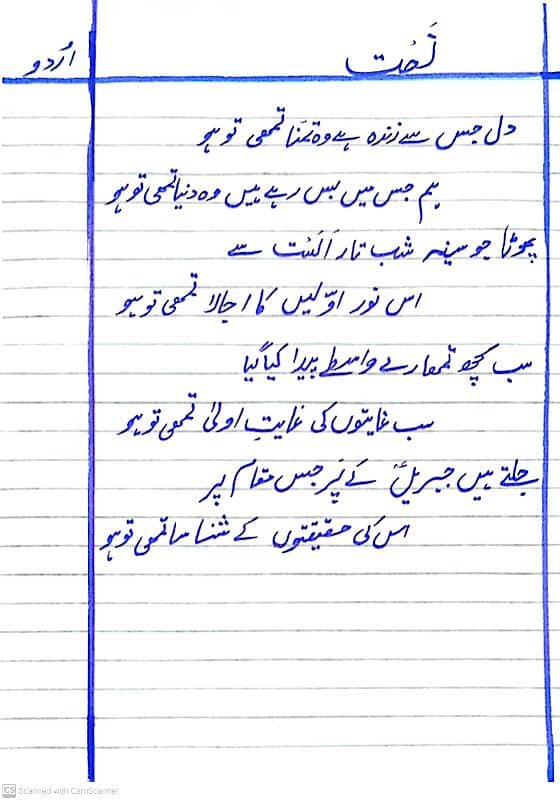 اُردو
نَعت
دل جس سے زندہ ہے وہ تمنّا تمھی تو ہو
ہم جس میں بس رہے ہیں وہ دنیا تمھی تو ہو
پھوٹا جو سینہ شب تار اَلَست سے
اس نور اوّلیں کا اجالا تمھی تو ہو
سب کچھ تمھارے واسطے پیدا کیا گیا
سب غایتوں کی غایتِ اولیٰ تمھی تو ہو
جلتے ہیں جبریلؑ کے پَر جس مقام پر
اس کی حقیقتوں کے شناسا تمھی تو ہو
CS Scanned with CamScanner